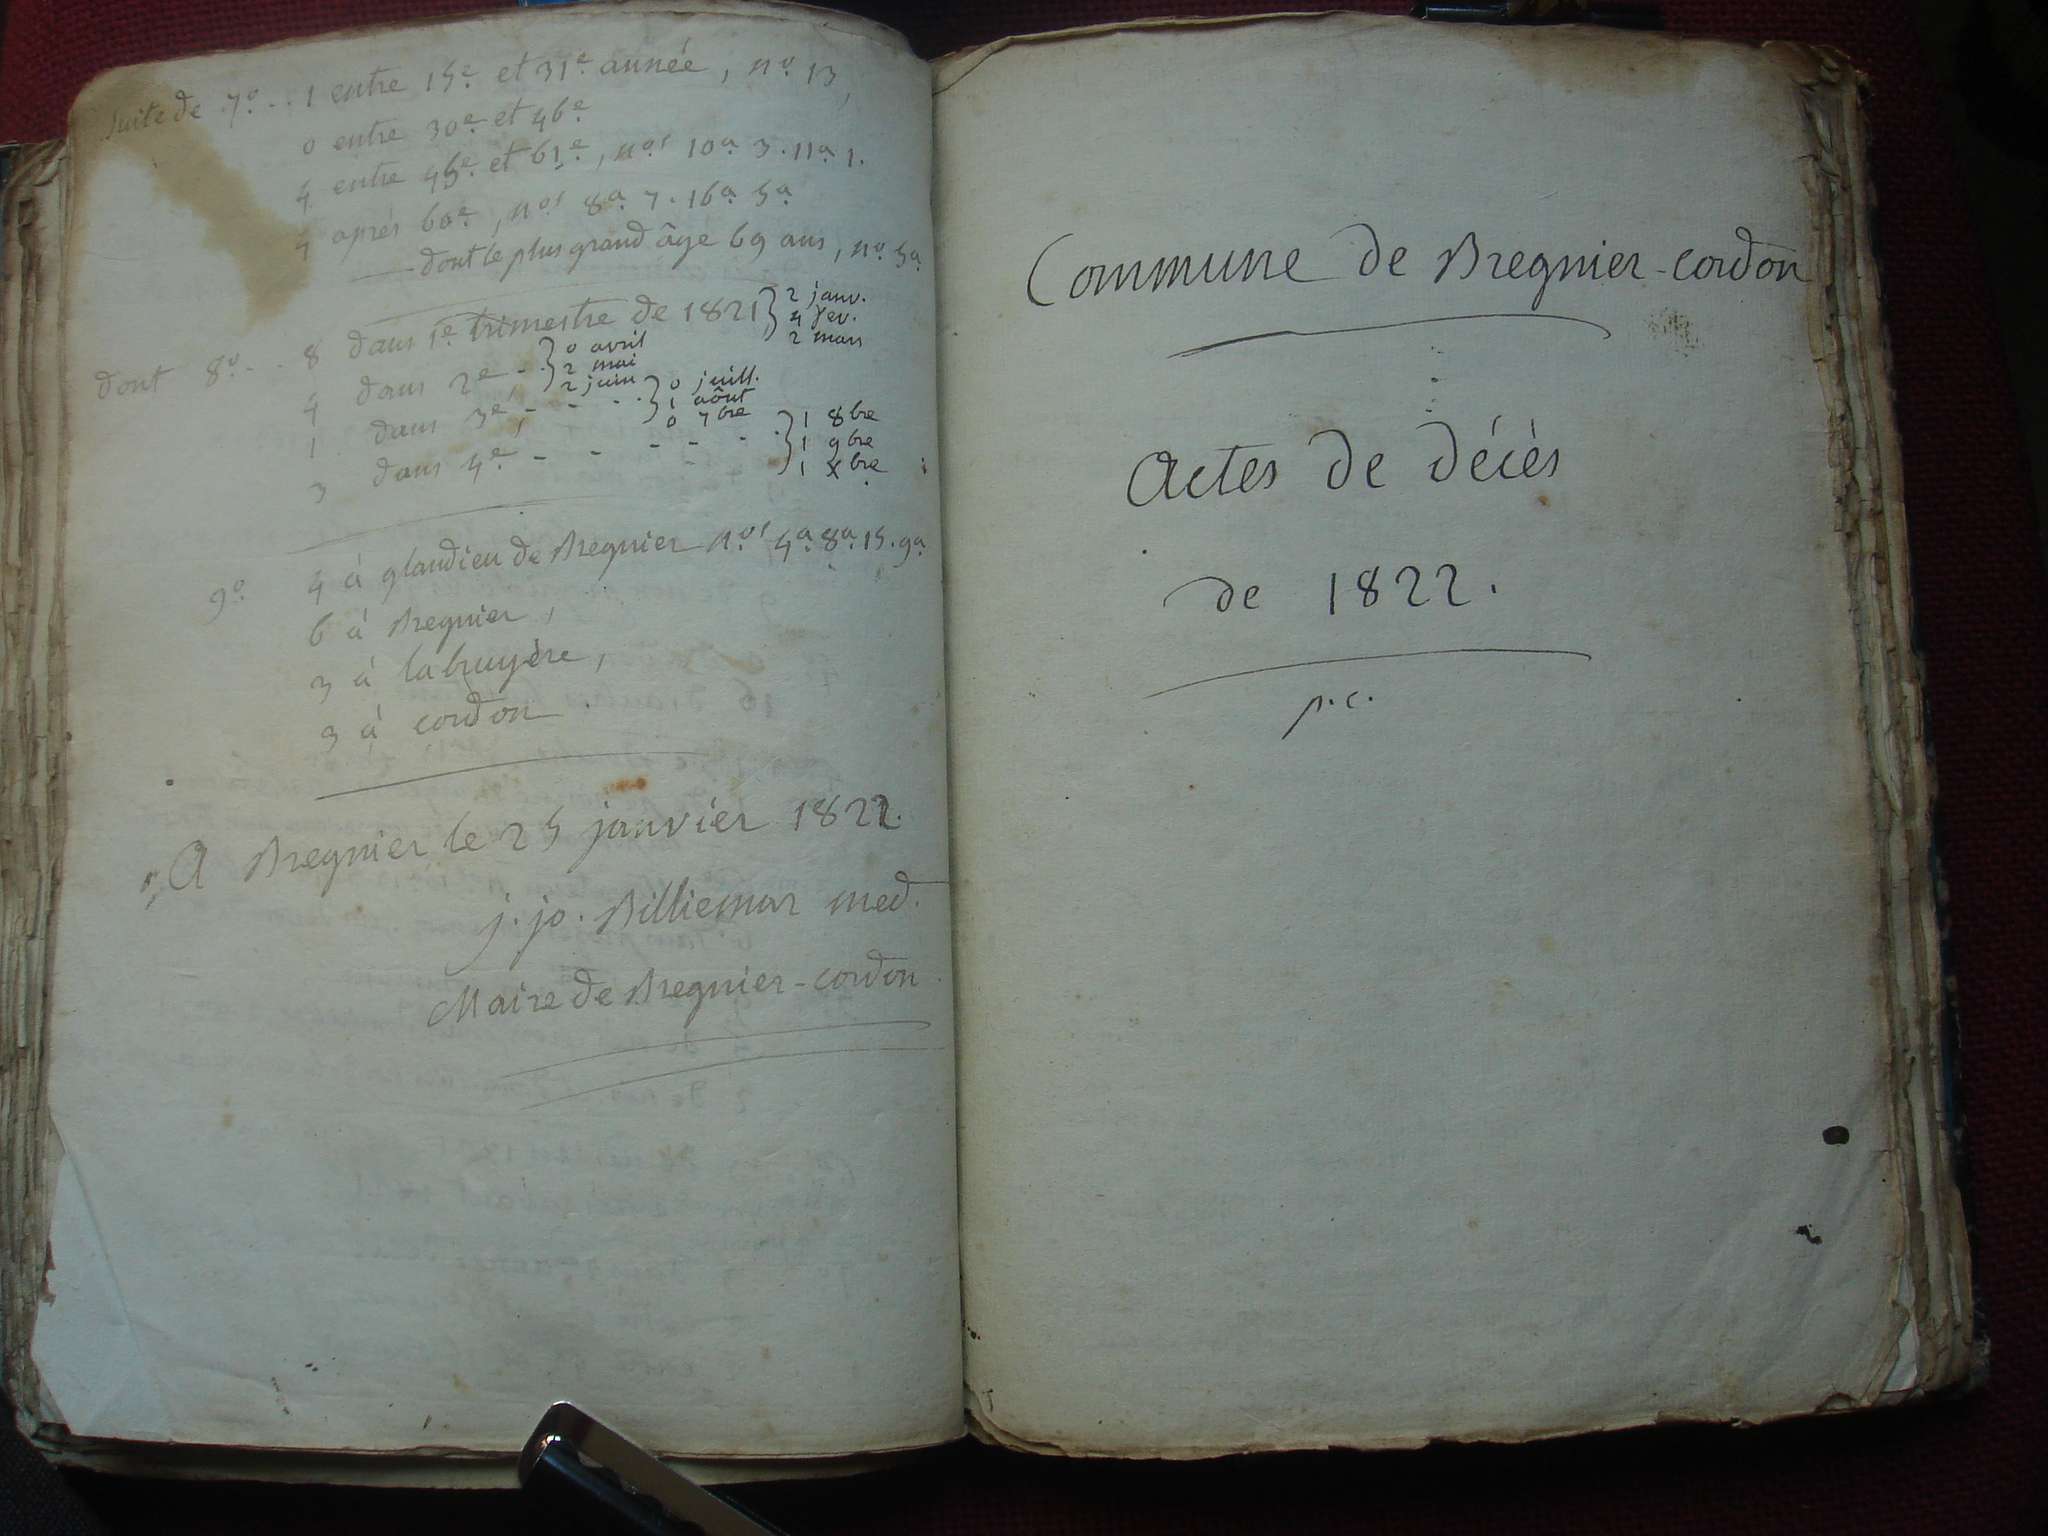 Suite de 7º - - 1 entre 15e et 31e année, nº 13,
0 entre 30e et 46e
4 entre 45e et 61e, nos 10a 3. 11a 1.
4 après 60e, nos 8a 7. 16a 5a
— dont le plus grand âge 69 ans, nº 5a
dont 8º - - 8 dans 1e trimestre de 1821, } 2 janv.
4 fev.
2 mars
4 dans 2e, - - } 0 avril
2 mai
2 juin
1 dans 3e, - - - - } 0 juill.
1 aôut
0 7bre
3 dans 4e - - - - - - } 1 8bre
1 9bre
1 Xbre
9º 4 à glandieu de Bregnier nos 4a 8a 15. 9a
6 à Bregnier,
3 à labruyère,
3 à cordon
A Bregnier le 25 janvier 1822.
j. jo. Billiemaz med.
Maire de Bregnier-cordon
Commune de Bregnier-cordon
Actes de décès
de 1822.
p.c.